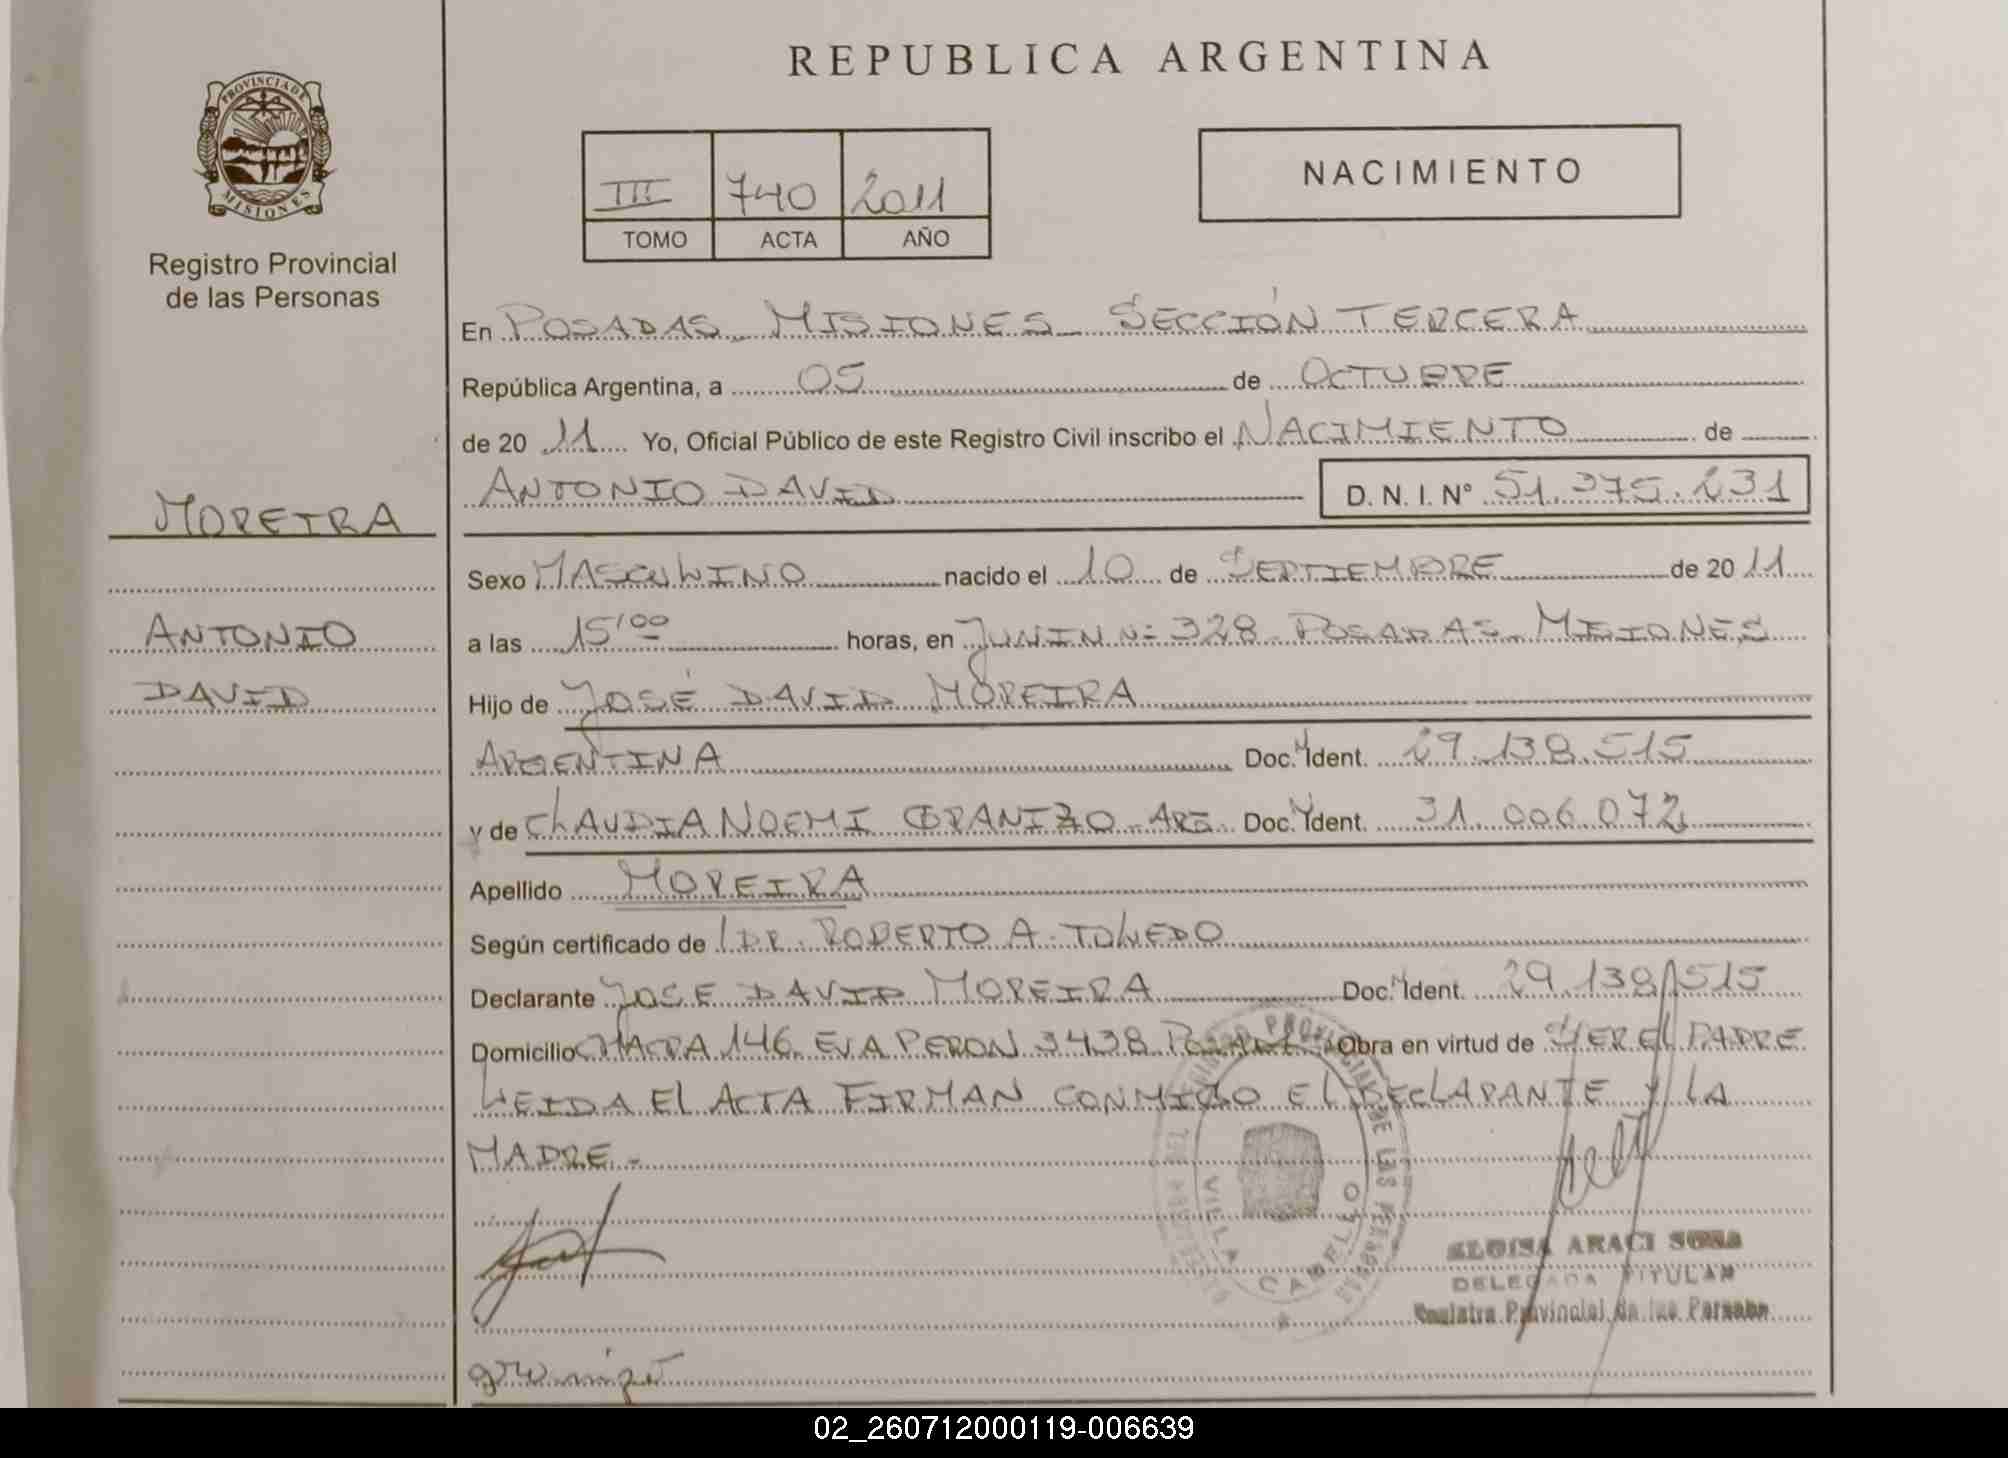 REPUBLICA ARGENTINA
PROVINCIA DE
MISIONES
Registro Provincial
de las Personas
III 740 2011
TOMO ACTA AÑO
NACIMIENTO
En POSADAS MISIONES - SECCIÓN TERCERA
República Argentina, a 05 de OCTUBRE
de 20 11 Yo, Oficial Público de este Registro Civil inscribo el NACIMIENTO de
ANTONIO DAVID D. N. I. N° 51.375.231
MOREIRA
ANTONIO
DAVID
Sexo MASCULINO nacido el 10 de SEPTIEMBRE de 20 11
a las 15'00 horas, en JUNIN N= 328 - POSADAS - MISIONES
Hijo de JOSÉ DAVID MOREIRA
ARGENTINA Doc. Ident. 29.138.515
y de CLAUDIA NOEMI GRANIZO - ARG. Doc. Ident. 31.006.072
Apellido MOREIRA
Según certificado de DR. ROBERTO A. TOLEDO
Declarante JOSE DAVID MOREIRA Doc. Ident. 29.138.515
Domicilio CHACRA 146 EVA PERON 3438 POSADAS Obra en virtud de SER EL PADRE
LEIDA EL ACTA FIRMAN CONMIGO EL DECLARANTE Y LA
MADRE -
VILLA CABELLO
DELEGADA TITULAR
Registro Provincial de las Personas
02_260712000119-006639